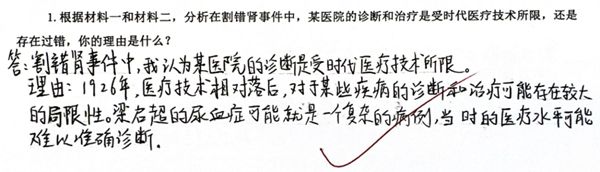 1.根据材料一和材料二，分析在割错肾事件中，某医院的诊断和治疗是受时代医疗技术所限，还是
存在过错，你的理由是什么？
答:割错肾事件中,我认为某医院的诊断是受时代医疗技术所限。
理由:1926年,医疗技术相对落后,对于某些疾病的诊断和治疗可能存在较大
的局限性。梁启超的尿血症可能就是一个复杂的病例,当时的医疗水平可能
难以准确诊断.